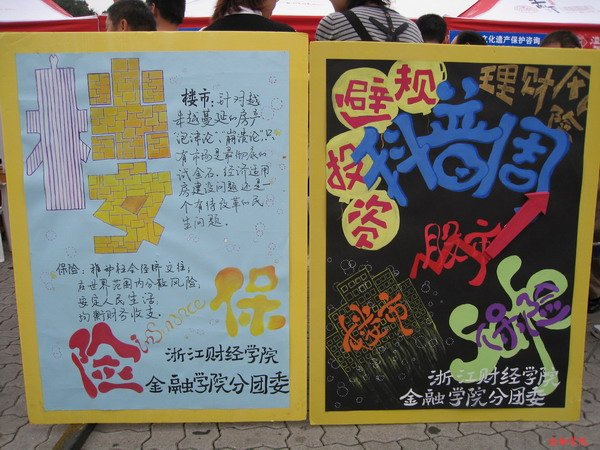 文化遗产保护咨询
楼
楼市:针对越
来越蔓延的房产
"泡沫论"、崩溃论",只
有市场是最彻底的
试金石。经济适用
房建设问题还是一
个有待改革的民
生问题。
保险:推动社会经济交往;
在世界范围内分散风险;
安定人民生活;
均衡财务收支。
保
险
浙江财经学院
金融学院分团委
规避
投资
理财
险
周
股市
楼市
保险
浙江财经学院
金融学院分团委